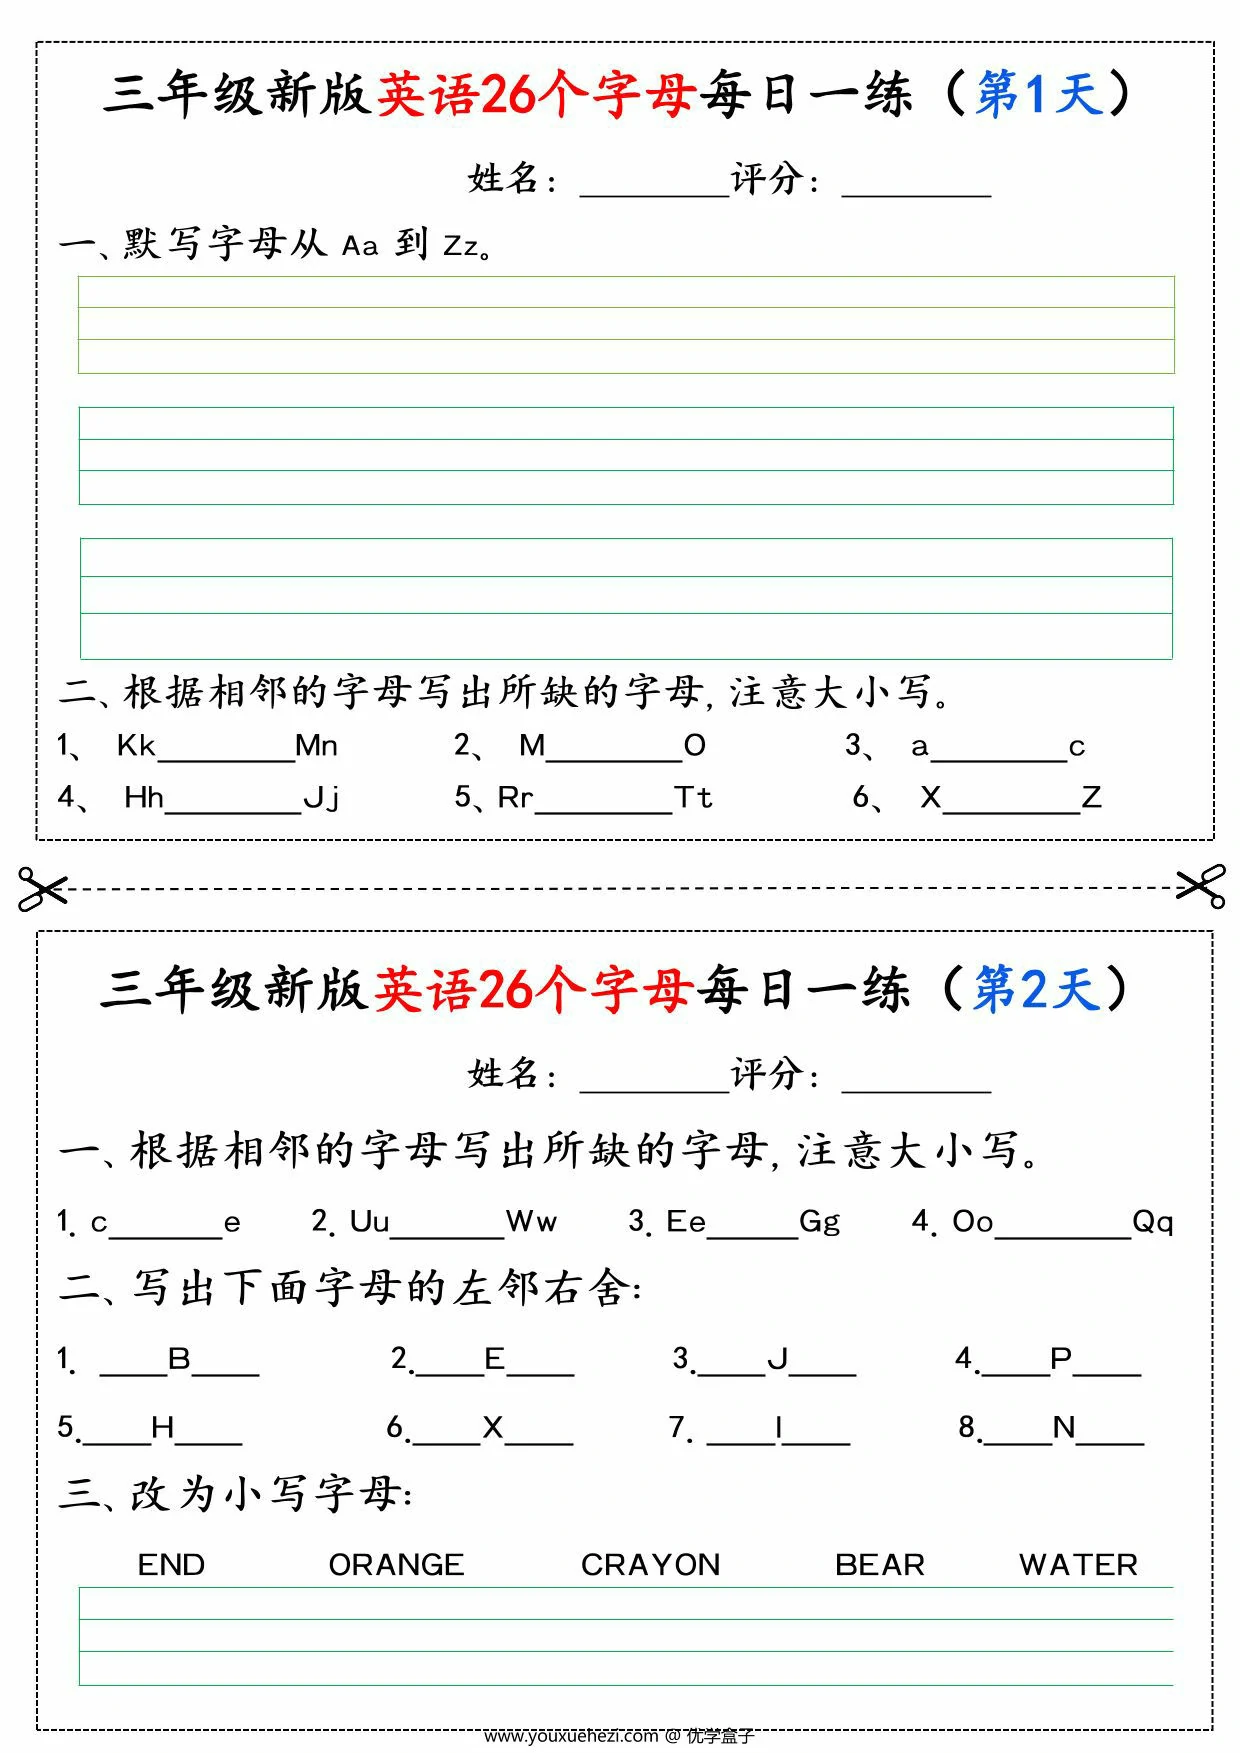 三年级新版英语26个字母每日一练（第1天）
姓名：________评分：________
一、默写字母从 Aa 到 Zz。
二、根据相邻的字母写出所缺的字母，注意大小写。
1、 Kk________Mn 2、 M________O 3、 a________c
4、 Hh________Jj 5、Rr________Tt 6、 X________Z
三年级新版英语26个字母每日一练（第2天）
姓名：________评分：________
一、根据相邻的字母写出所缺的字母，注意大小写。
1. c_____e 2. Uu_____Ww 3. Ee____Gg 4. Oo______Qq
二、写出下面字母的左邻右舍：
1. ___B___ 2.___E___ 3.___J___ 4.___P___
5.___H___ 6.___X___ 7. ___I___ 8.___N___
三、改为小写字母：
END ORANGE CRAYON BEAR WATER
www.youxuehezi.com @ 优学盒子